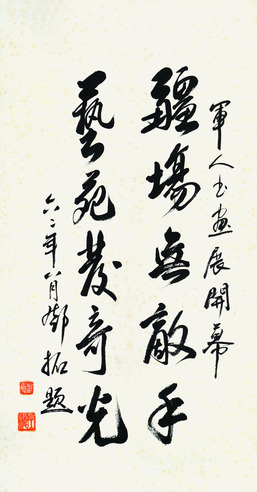 軍人书画展開幕
疆場無敵手
藝苑發奇光
六二年八月鄧拓题